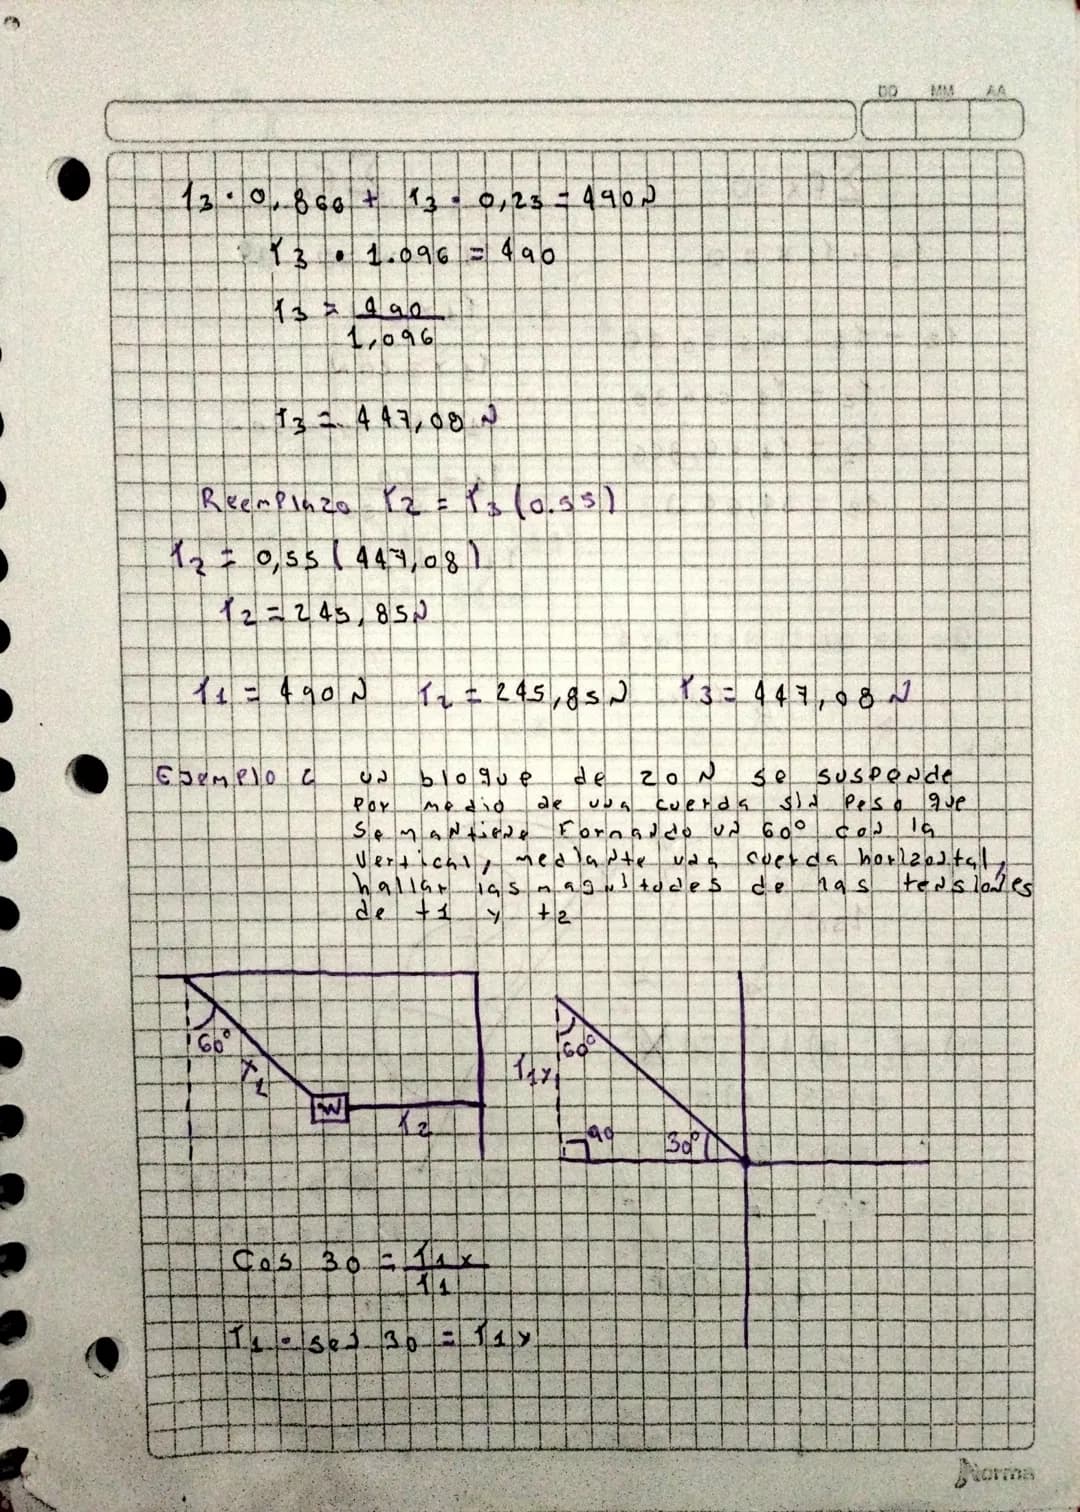 DD MM AA
T3 · 0,866 + T3 · 0,23 = 490N
T3 · 1.096 = 490
T3 = 490
1,096
T3 = 447,08 N
Reemplazo T2 = T3 (0.55)
T2 = 0,55 ( 447,08)
T2 = 245,85N
T1 = 490 N T2 = 245,85N T3 = 447,08 N
Ejemplo un bloque de 20 N se suspende
Por medio de una cuerda sin Peso que
Se mantiene Formando un 60° con la
Vertical, mediante una cuerda horizontal,
hallar las magnitudes de las tensiones
de t1 y t2
60°
W
T2
60°
T1y
90
30°
Cos 30 = T1x
T1
T1 · sen 30 = T1y
Norma